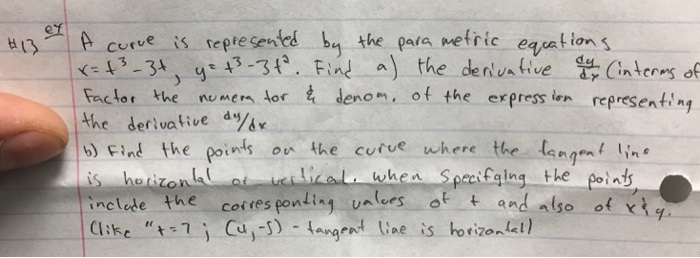 #13 ex A curve is represented by the parametric equations
x = t³ - 3t, y = t³ - 3t². Find a) the derivative dy/dx (in terms of
Factor the numerator & denom. of the expression representing
the derivative dy/dx
b) Find the points on the curve where the tangent line
is horizontal or vertical. when specifying the points,
include the corresponding values of t and also of x & y.
(like "t = 7; (4, -5) - tangent line is horizontal)